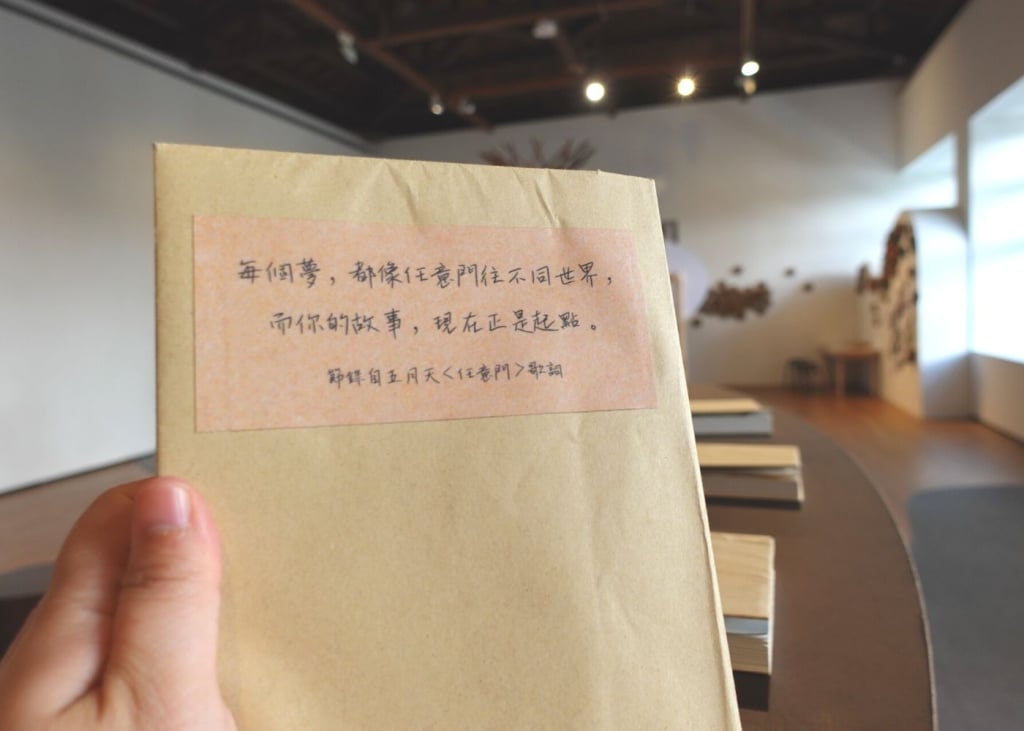 每個夢，都像任意門往不同世界，
而你的故事，現在正是起點。
節錄自五月天＜任意門＞歌詞